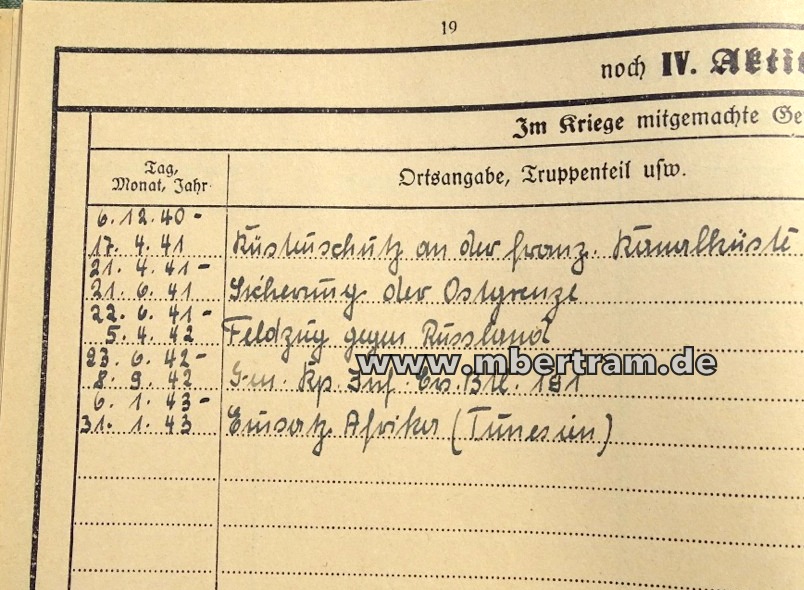 19
noch IV. Akti
Im Kriege mitgemachte Ge
Tag,
Monat, Jahr
Ortsangabe, Truppenteil usw.
6.12.40-
17. 4. 41 Küstenschutz an der franz. Kanalküste
21. 4. 41-
21. 6. 41 Sicherung der Ostgrenze
22. 6. 41-
5. 4. 42 Feldzug gegen Russland
www.mbertram.de
23. 6. 42-
8. 9. 42 Gen. Kp. Inf. Ers. Btl. 181
6. 1. 43-
31. 1. 43 Einsatz Afrika (Tunesien)